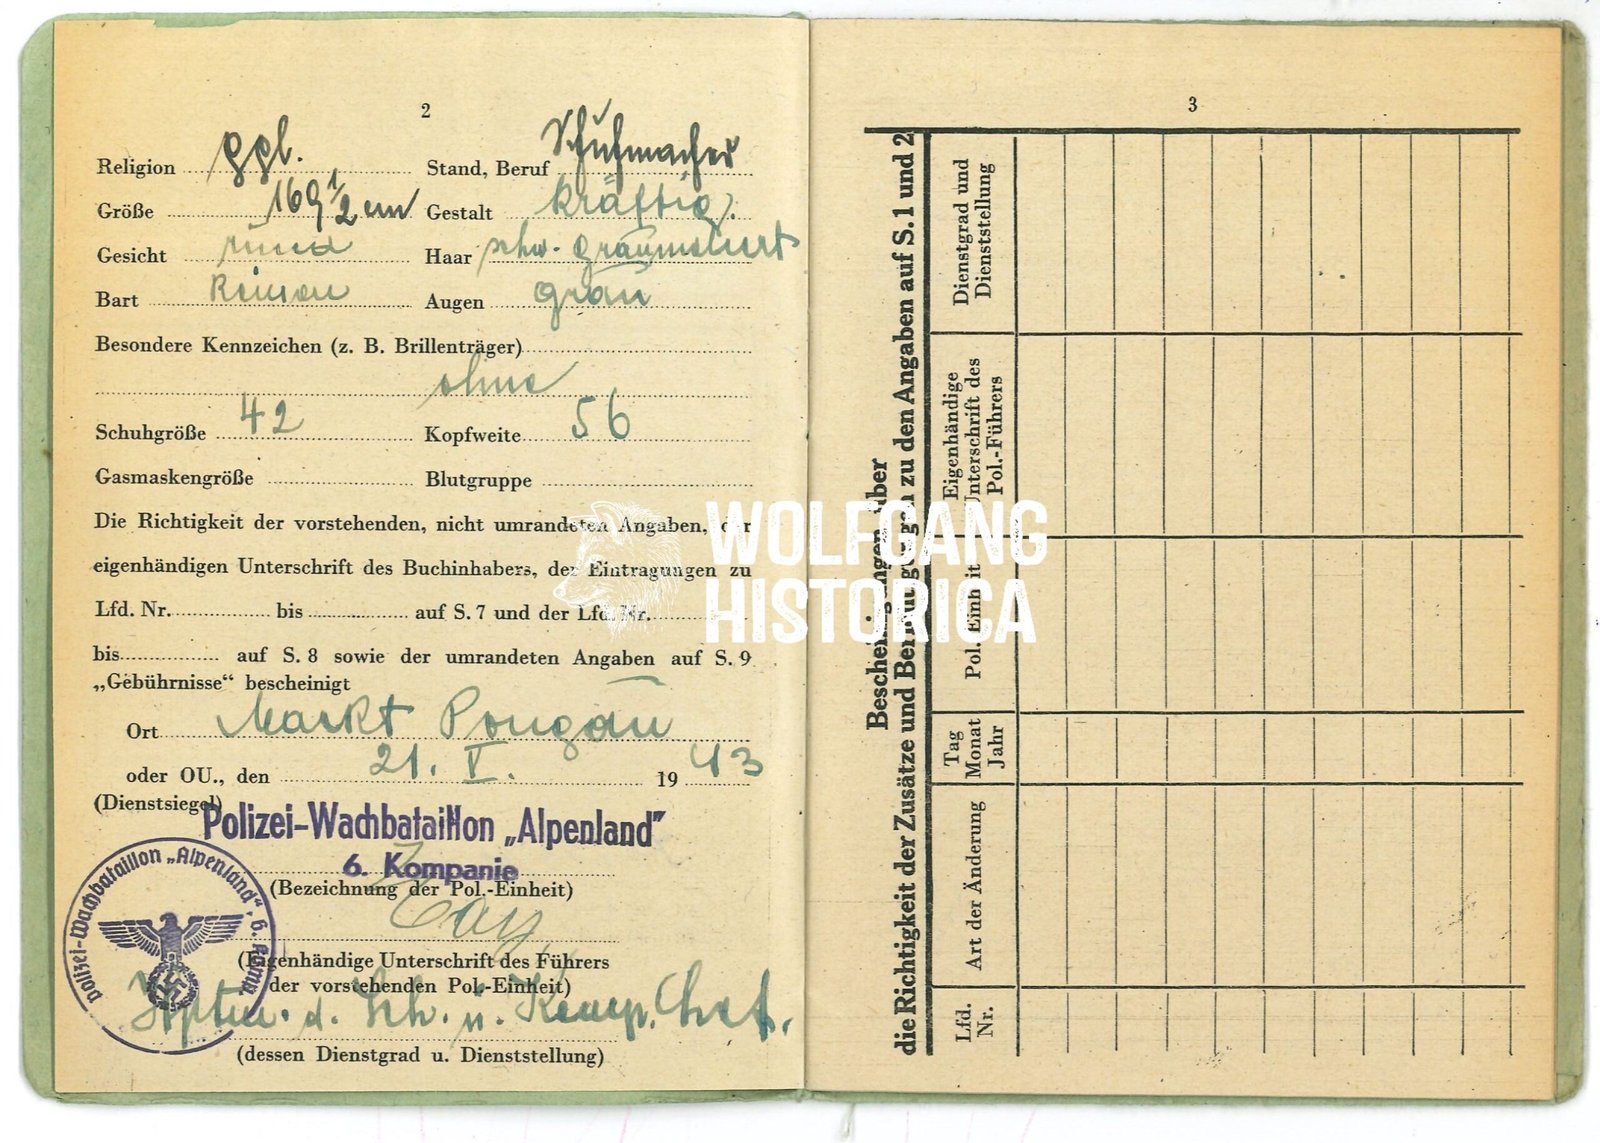 2
Religion ggl. Stand, Beruf Schuhmacher
Größe 169 1/2 cm Gestalt kräftig.
Gesicht rund Haar schw. graumeliert
Bart Augen grau
Besondere Kennzeichen (z. B. Brillenträger)
ohne
Schuhgröße 42 Kopfweite 56
Gasmaskengröße Blutgruppe
Die Richtigkeit der vorstehenden, nicht umrandeten Angaben, der
eigenhändigen Unterschrift des Buchinhabers, der Eintragungen zu
Lfd. Nr. bis auf S. 7 und der Lfd. Nr.
bis auf S. 8 sowie der umrandeten Angaben auf S. 9
„Gebührnisse“ bescheinigt
Ort Markt Pongau
oder OU., den 21. V. 19 43
(Dienstsiegel)
Polizei-Wachbataillon „Alpenland“
6. Kompanie
(Bezeichnung der Pol.-Einheit)
(Eigenhändige Unterschrift des Führers
der vorstehenden Pol.-Einheit)
Hptm. d. Sch. u. Komp. Chef.
(dessen Dienstgrad u. Dienststellung)
Polizei-Wachbataillon „Alpenland“, 6. Komp.
3
Bescheinigungen über
die Richtigkeit der Zusätze und Berichtigungen zu den Angaben auf S. 1 und 2
Lfd.
Nr.
Art der Änderung
Tag
Monat
Jahr
Pol. Einheit
Eigenhändige
Unterschrift des
Pol.-Führers
Dienstgrad und
Dienststellung
WOLFGANG
HISTORICA